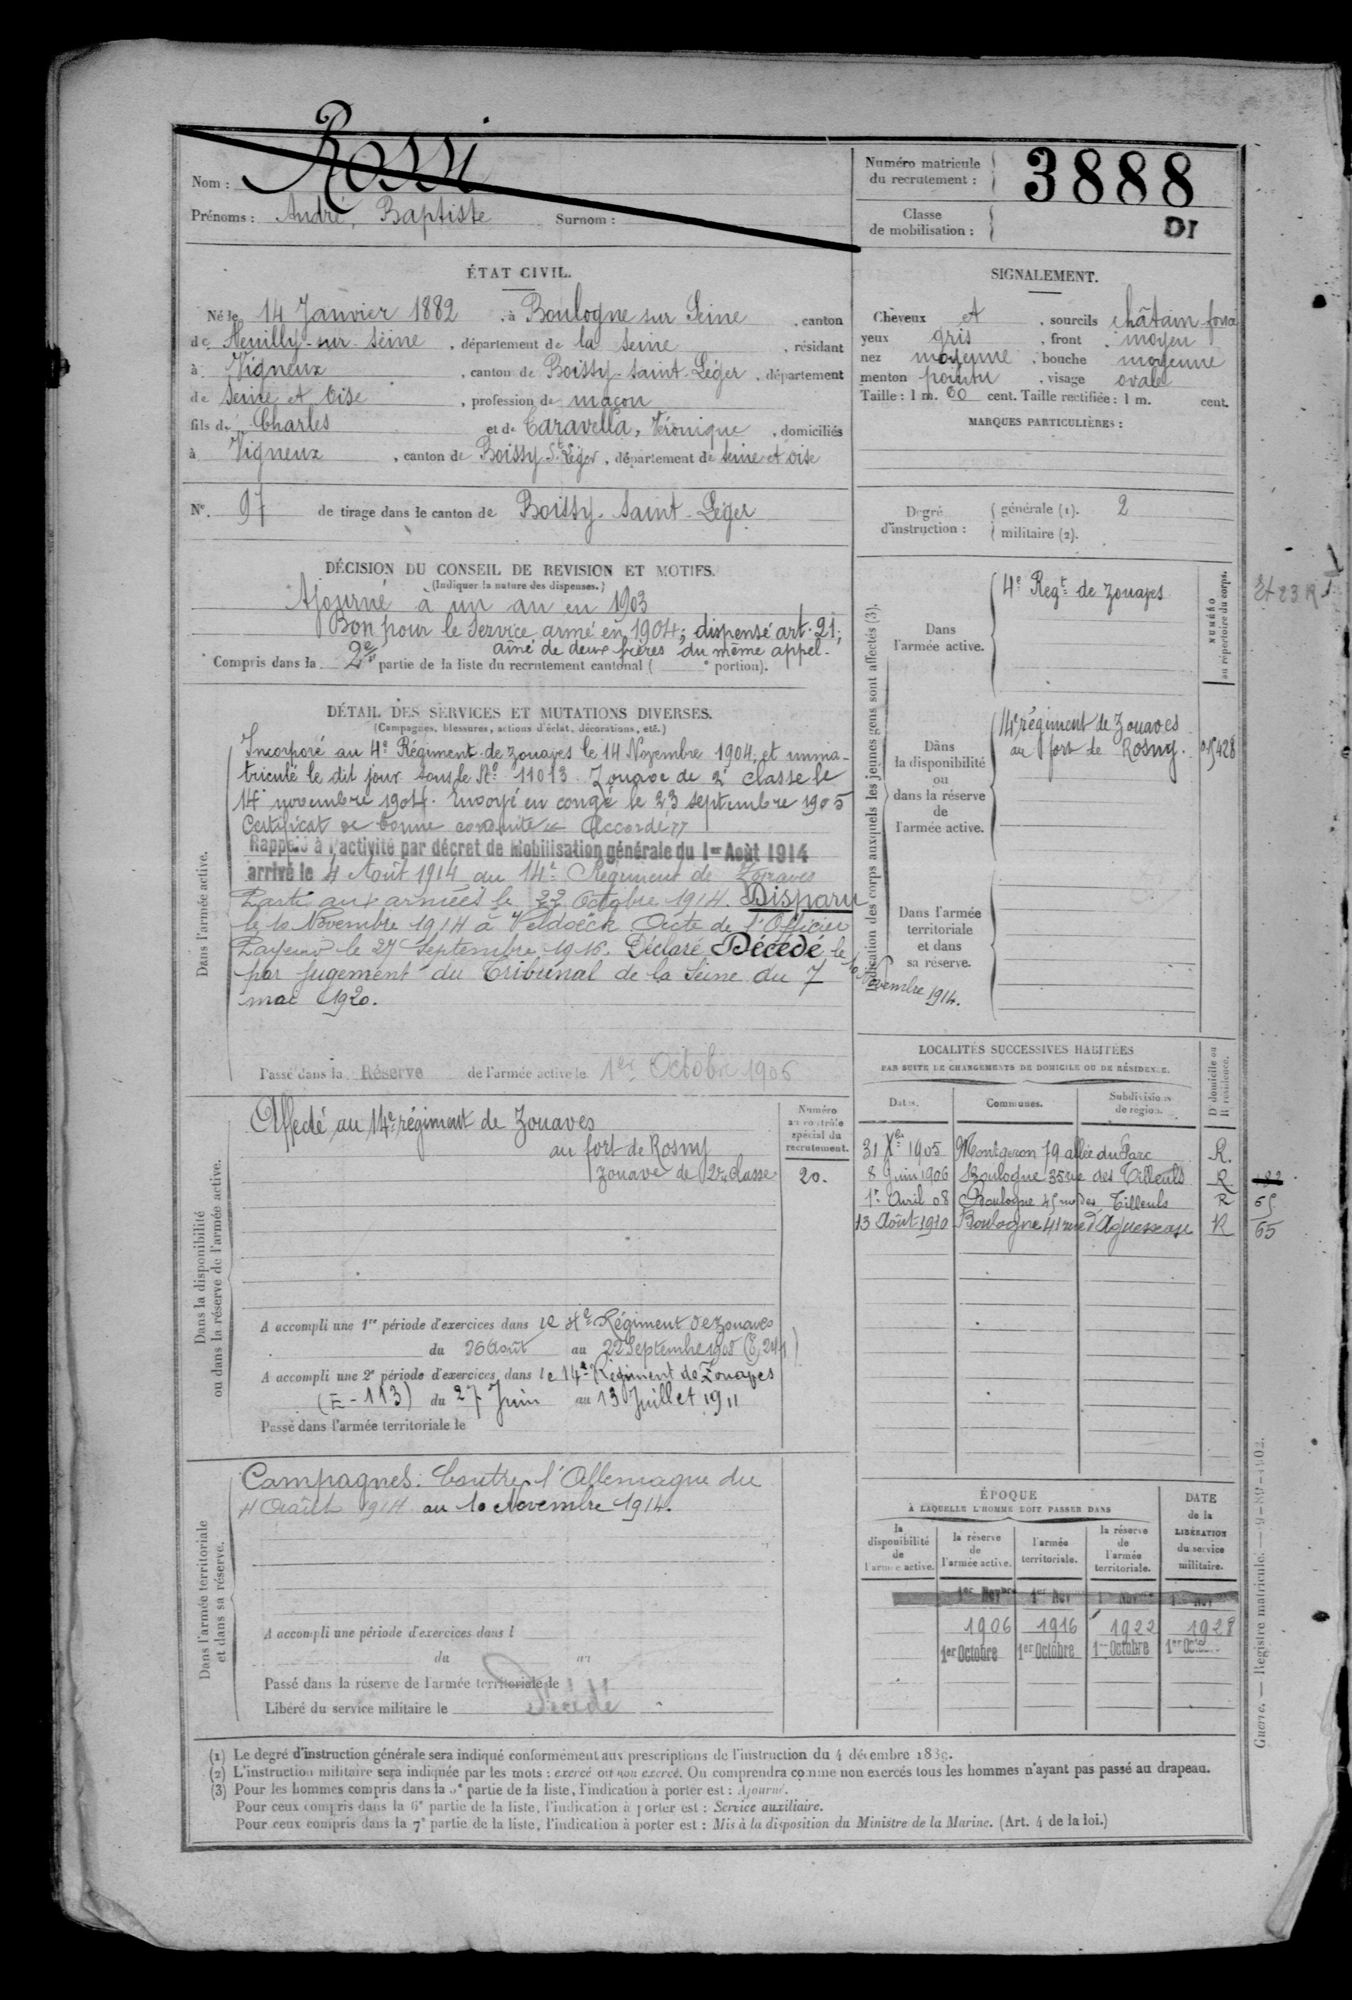 Nom : Rossi
Prénoms : André, Baptiste Surnom :
Numéro matricule
du recrutement :
3888
Classe
de mobilisation :
DI
ÉTAT CIVIL.
Né le 14 Janvier 1882, à Boulogne sur Seine, canton
de Neuilly-sur-Seine, département de la Seine, résidant
à Vigneux, canton de Boissy-saint-Léger, département
de Seine et Oise, profession de maçon
fils de Charles et de Caravella, Véronique, domiciliés
à Vigneux, canton de Boissy St Léger, département de seine et oise
N°. 97 de tirage dans le canton de Boissy-Saint-Léger
SIGNALEMENT.
Cheveux et, sourcils châtain foncé
yeux gris, front moyen
nez moyenne, bouche moyenne
menton pointu, visage ovale
Taille : 1 m. 60 cent. Taille rectifiée : 1 m. cent.
MARQUES PARTICULIÈRES :
Degré
d'instruction :
générale (1). 2
militaire (2).
DÉCISION DU CONSEIL DE REVISION ET MOTIFS.
(Indiquer la nature des dispenses.)
Ajourné à un an en 1903
Bon pour le Service armé en 1904; dispensé art. 21;
aîné de deux frères du même appel.
Compris dans la 2e partie de la liste du recrutement cantonal ( e portion).
DÉTAIL DES SERVICES ET MUTATIONS DIVERSES.
(Campagnes, blessures, actions d'éclat, décorations, etc.)
Dans l'armée active.
Incorporé au 4e Régiment de zouaves le 14 Novembre 1904, et imma-
triculé le dit jour sous le No 11013. Zouave de 2e classe le
14 novembre 1904. Envoyé en congé le 23 septembre 1905
Certificat de bonne conduite "Accordé"
Rappelé à l'activité par décret de Mobilisation générale du 1er Août 1914
arrivé le 4 Août 1914 au 14e Régiment de Zouaves
Parti aux armées le 22 Octobre 1914. Disparu
le 10 Novembre 1914 à Veldoëck Acte de l'Officier
Payeur le 27 Septembre 1916. Déclaré Décédé le
10 Novembre 1914.
par jugement du Tribunal de la Seine du 7
mai 1920.
Passé dans la Réserve de l'armée active le 1er Octobre 1906
Indication des corps auxquels les jeunes gens sont affectés (3).
Dans
l'armée active.
4e Regt de zouaves
NUMÉRO
au répertoire du corps.
Dans
la disponibilité
ou
dans la réserve
de
l'armée active.
14e régiment de Zouaves
au fort de Rosny.
Dans l'armée
territoriale
et dans
sa réserve.
LOCALITÉS SUCCESSIVES HABITÉES
PAR SUITE DE CHANGEMENTS DE DOMICILE OU DE RÉSIDENCE.
Dates. Communes. Subdivisions
de région.
D domicile ou
R résidence.
31 Xbre 1905 Montgeron 79 allée du Parc R.
8 Juin 1906 Boulogne 35 rue des Tilleuls R.
1er Avril 08 Boulogne 45 rue des Tilleuls R 65
13 Août 1910 Boulogne 41 rue d'Aguesseau R 65
Dans la disponibilité
ou dans la réserve de l'armée active.
Affecté au 14e régiment de Zouaves
au fort de Rosny
zouave de 2e classe
Numéro
au contrôle
spécial du
recrutement.
20.
A accompli une 1re période d'exercices dans le 4e Régiment de Zouaves
du 26 Août au 22 Septembre 1908
A accompli une 2e période d'exercices dans le 14e Régiment de Zouaves
(E-113) du 27 Juin au 13 Juillet 1911
Passé dans l'armée territoriale le
Dans l'armée territoriale
et dans sa réserve.
Campagnes : Contre l'Allemagne du
4 Août 1914 au 10 Novembre 1914.
A accompli une période d'exercices dans l
du au
Passé dans la réserve de l'armée territoriale le
Libéré du service militaire le
Décédé
ÉPOQUE
À LAQUELLE L'HOMME DOIT PASSER DANS
la
disponibilité
de
l'armée active.
la réserve
de
l'armée active.
l'armée
territoriale.
la réserve
de
l'armée
territoriale.
DATE
de la
LIBÉRATION
du service
militaire.
1er Nov 1er Nov 1er Nov 1er Nov
1906 1916 1922 1928
1er Octobre 1er Octobre 1er Octobre 1er Octobre
Guerre. — Registre matricule. — 9-89-1902.
(1) Le degré d'instruction générale sera indiqué conformément aux prescriptions de l'instruction du 4 décembre 1889.
(2) L'instruction militaire sera indiquée par les mots : exercé ou non exercé. On comprendra comme non exercés tous les hommes n'ayant pas passé au drapeau.
(3) Pour les hommes compris dans la 5e partie de la liste, l'indication à porter est : Ajourné.
Pour ceux compris dans la 6e partie de la liste, l'indication à porter est : Service auxiliaire.
Pour ceux compris dans la 7e partie de la liste, l'indication à porter est : Mis à la disposition du Ministre de la Marine. (Art. 4 de la loi.)